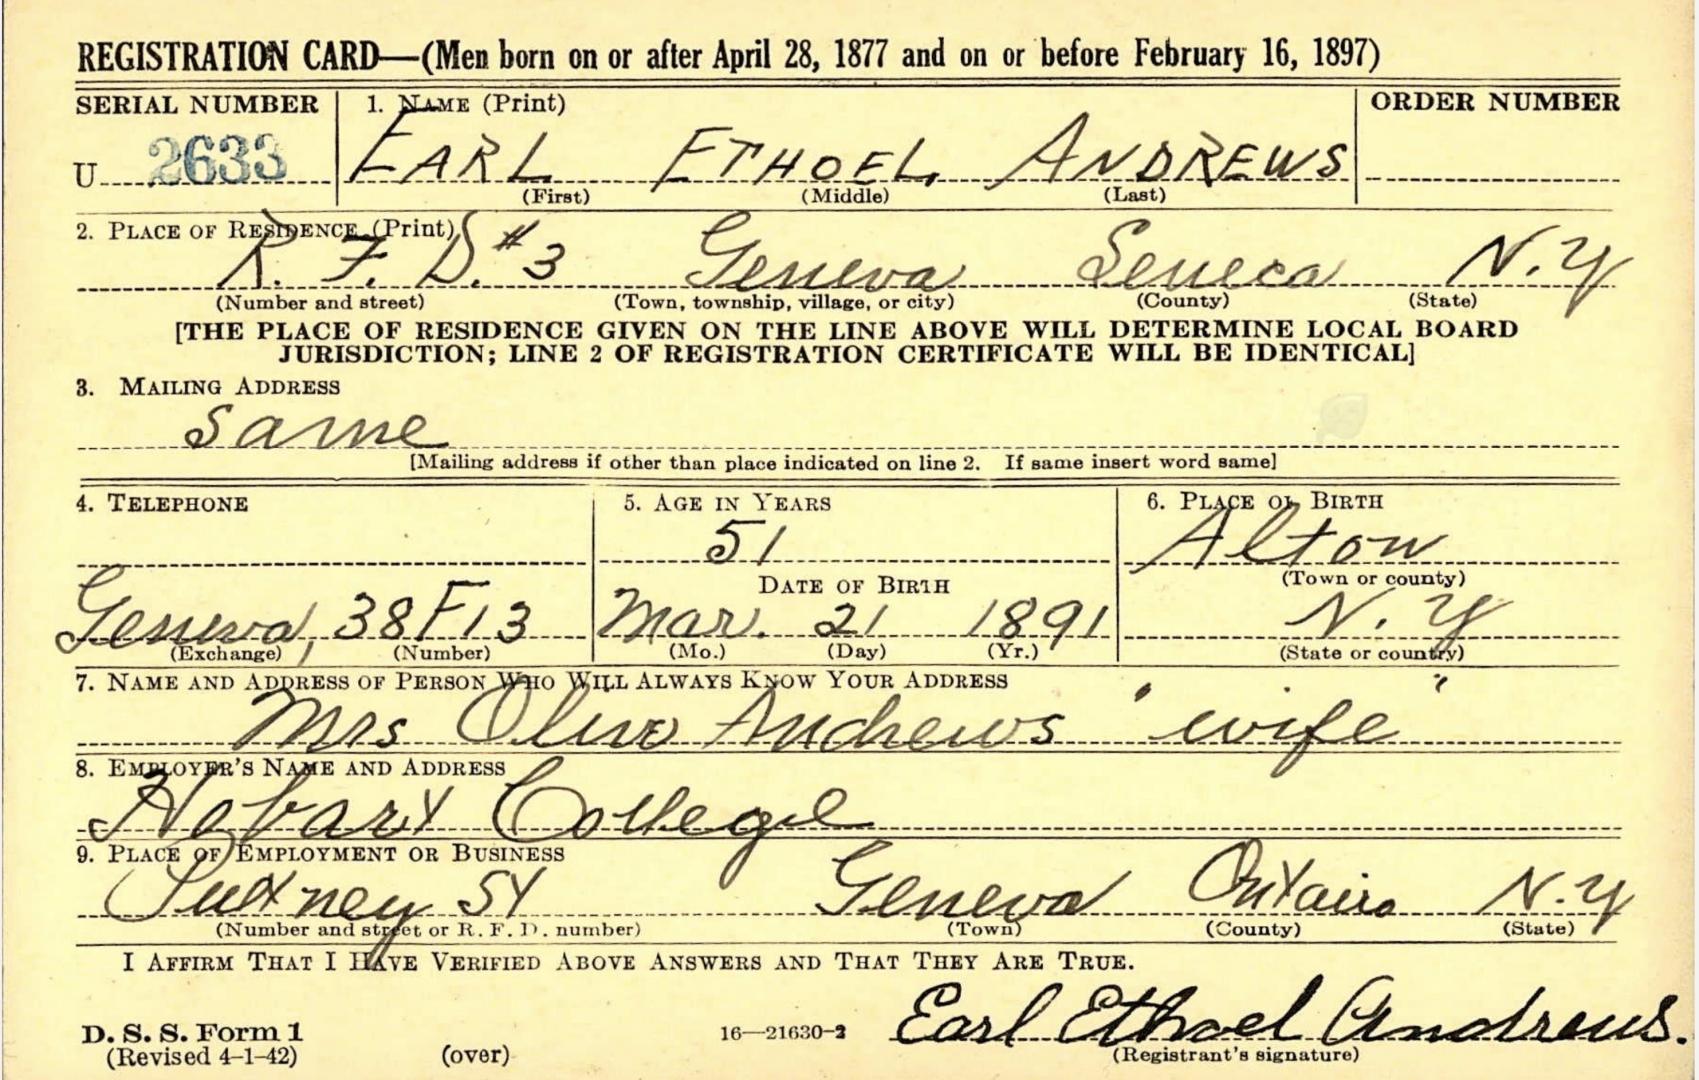 REGISTRATION CARD—(Men born on or after April 28, 1877 and on or before February 16, 1897)
SERIAL NUMBER 1. NAME (Print) ORDER NUMBER
U 2633 EARL ETHOEL ANDREWS
(First) (Middle) (Last)
2. PLACE OF RESIDENCE (Print)
R. F. D. #3 Geneva Seneca N.Y
(Number and street) (Town, township, village, or city) (County) (State)
[THE PLACE OF RESIDENCE GIVEN ON THE LINE ABOVE WILL DETERMINE LOCAL BOARD
JURISDICTION; LINE 2 OF REGISTRATION CERTIFICATE WILL BE IDENTICAL]
3. MAILING ADDRESS
Same
[Mailing address if other than place indicated on line 2. If same insert word same]
4. TELEPHONE 5. AGE IN YEARS 6. PLACE OF BIRTH
51 Alton
DATE OF BIRTH (Town or county)
Geneva, 38F13 Mar. 21 1891 N. Y
(Exchange) (Number) (Mo.) (Day) (Yr.) (State or country)
7. NAME AND ADDRESS OF PERSON WHO WILL ALWAYS KNOW YOUR ADDRESS
Mrs Olive Andrews "wife"
8. EMPLOYER'S NAME AND ADDRESS
Hobart College
9. PLACE OF EMPLOYMENT OR BUSINESS
Pultney St Geneva Ontario N.Y
(Number and street or R. F. D. number) (Town) (County) (State)
I AFFIRM THAT I HAVE VERIFIED ABOVE ANSWERS AND THAT THEY ARE TRUE.
D. S. S. Form 1 16—21630-2 Earl Ethoel Andrews.
(Revised 4-1-42) (over) (Registrant's signature)